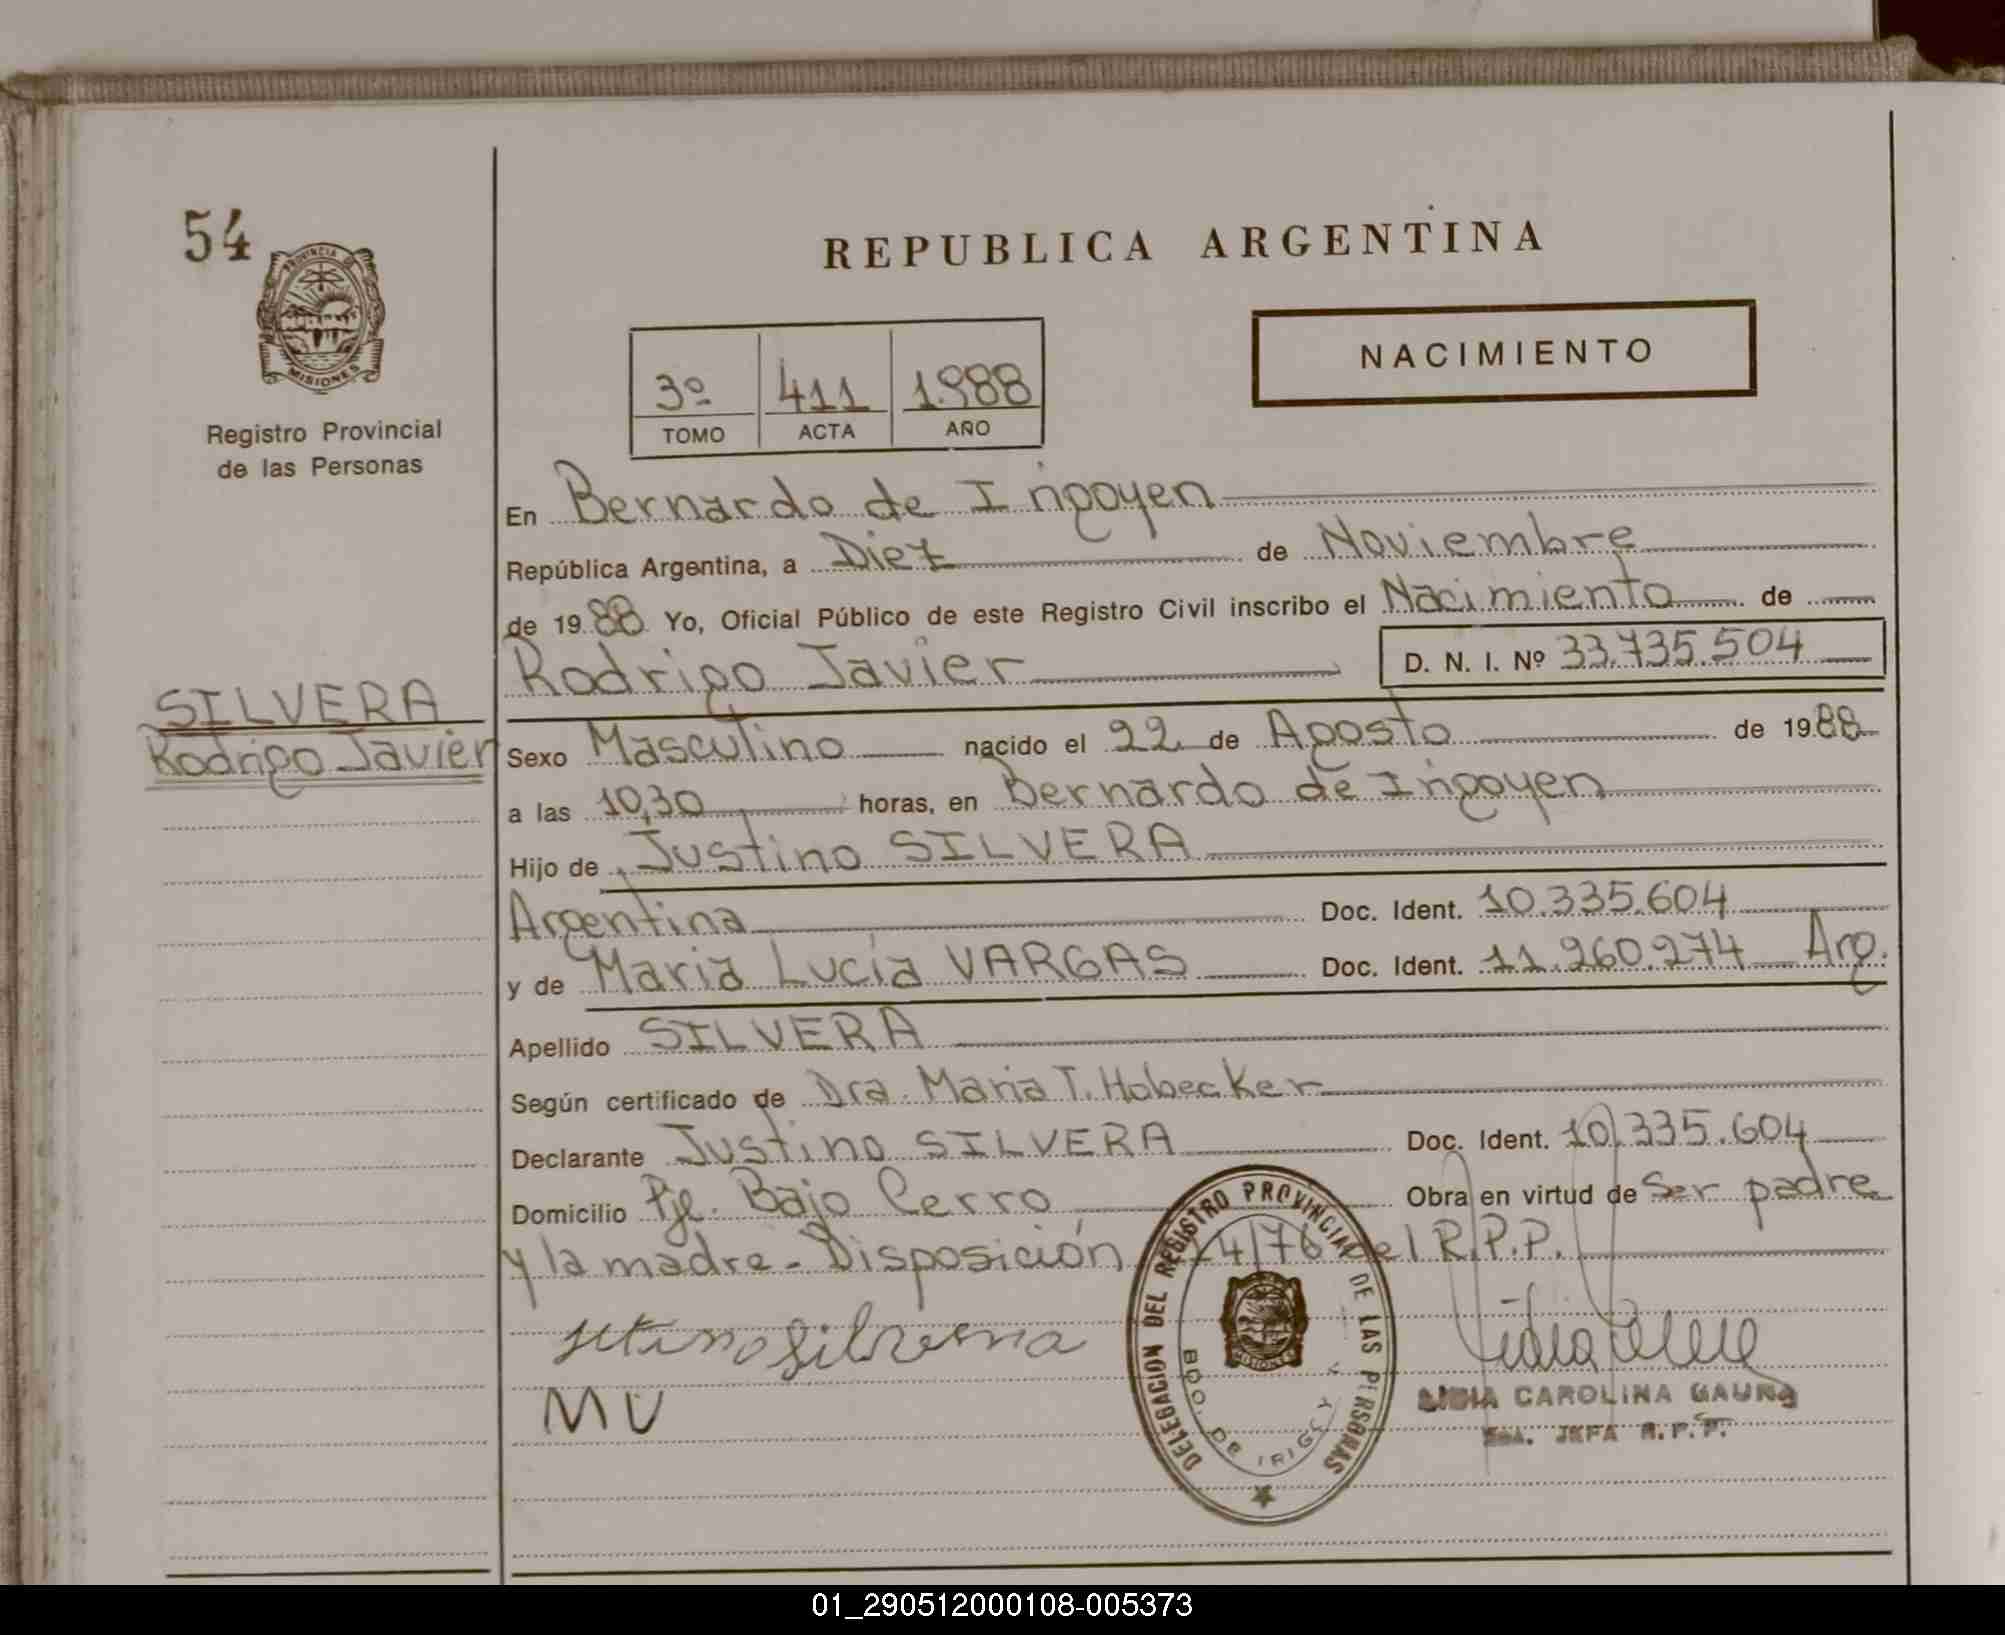 54
PROVINCIA DE
MISIONES
Registro Provincial
de las Personas
SILVERA
Rodrigo Javier
REPUBLICA ARGENTINA
NACIMIENTO
3º 411 1.988
TOMO ACTA AÑO
En Bernardo de Irigoyen
República Argentina, a Diez de Noviembre
de 1988 Yo, Oficial Público de este Registro Civil inscribo el Nacimiento de
Rodrigo Javier D. N. I. Nº 33.735.504
Sexo Masculino nacido el 22 de Agosto de 1988
a las 10,30 horas, en Bernardo de Irigoyen
Hijo de Justino SILVERA
Argentina Doc. Ident. 10.335.604
y de Maria Lucía VARGAS Doc. Ident. 11.260.274 Arg.
Apellido SILVERA
Según certificado de Dra. Maria T. Hobecker
Declarante Justino SILVERA Doc. Ident. 10.335.604
Domicilio Pje. Bajo Cerro Obra en virtud de Ser padre
y la madre - Disposición 24/76 del R.P.P.
MV
DELEGACION DEL REGISTRO PROVINCIAL DE LAS PERSONAS
BDO. DE IRIGOYEN
MISIONES
LIDIA CAROLINA GAUNA
JEFA R.P.P.
01_290512000108-005373